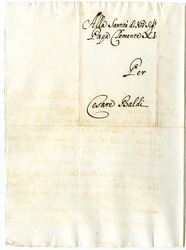 Alla Santità di N̄ro Sigʳᵉ
Papa Clemente XI
Per
Cesare Baldi